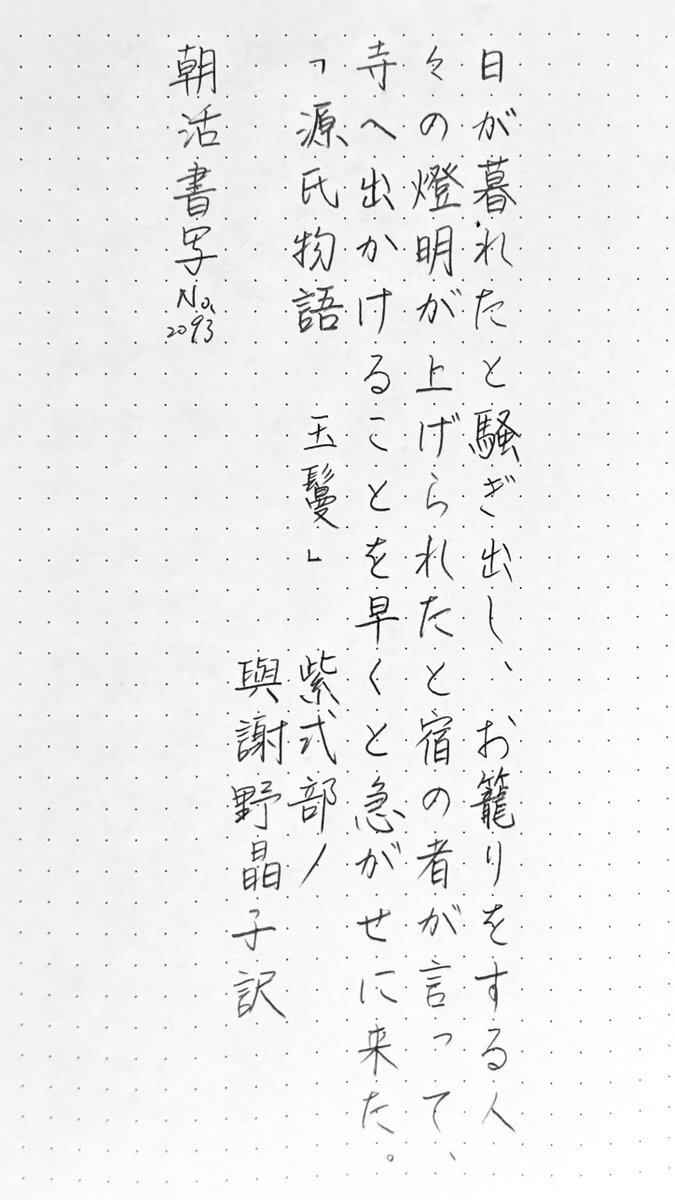 日が暮れたと騒ぎ出し、お籠りをする人
々の燈明が上げられたと宿の者が言って、
寺へ出かけることを早くと急がせに来た。
「源氏物語　玉鬘」　紫式部／
與謝野晶子訳
朝活書写No.2093